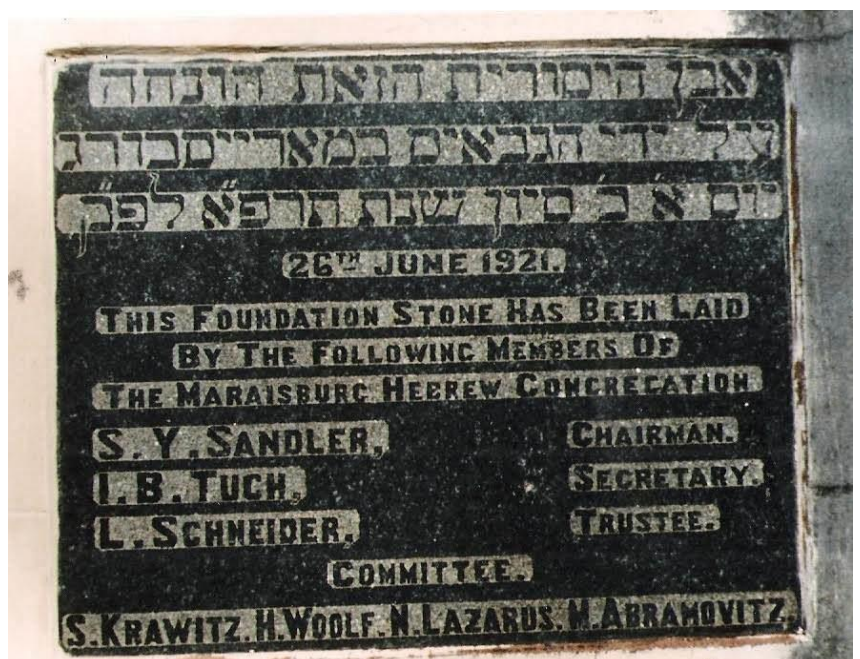 אבן היסורית הזאת הונחה
על ידי הגבאים במארייסבורג
יום א׳ כ׳ סיון שנת תרפ״א לפ״ק
26TH JUNE 1921.
THIS FOUNDATION STONE HAS BEEN LAID
BY THE FOLLOWING MEMBERS OF
THE MARAISBURG HEBREW CONGREGATION
S. Y. SANDLER, CHAIRMAN.
I. B. TUCH, SECRETARY.
L. SCHNEIDER, TRUSTEE.
COMMITTEE.
S. KRAWITZ. H. WOOLF. N. LAZARUS. M. ABRAMOVITZ.